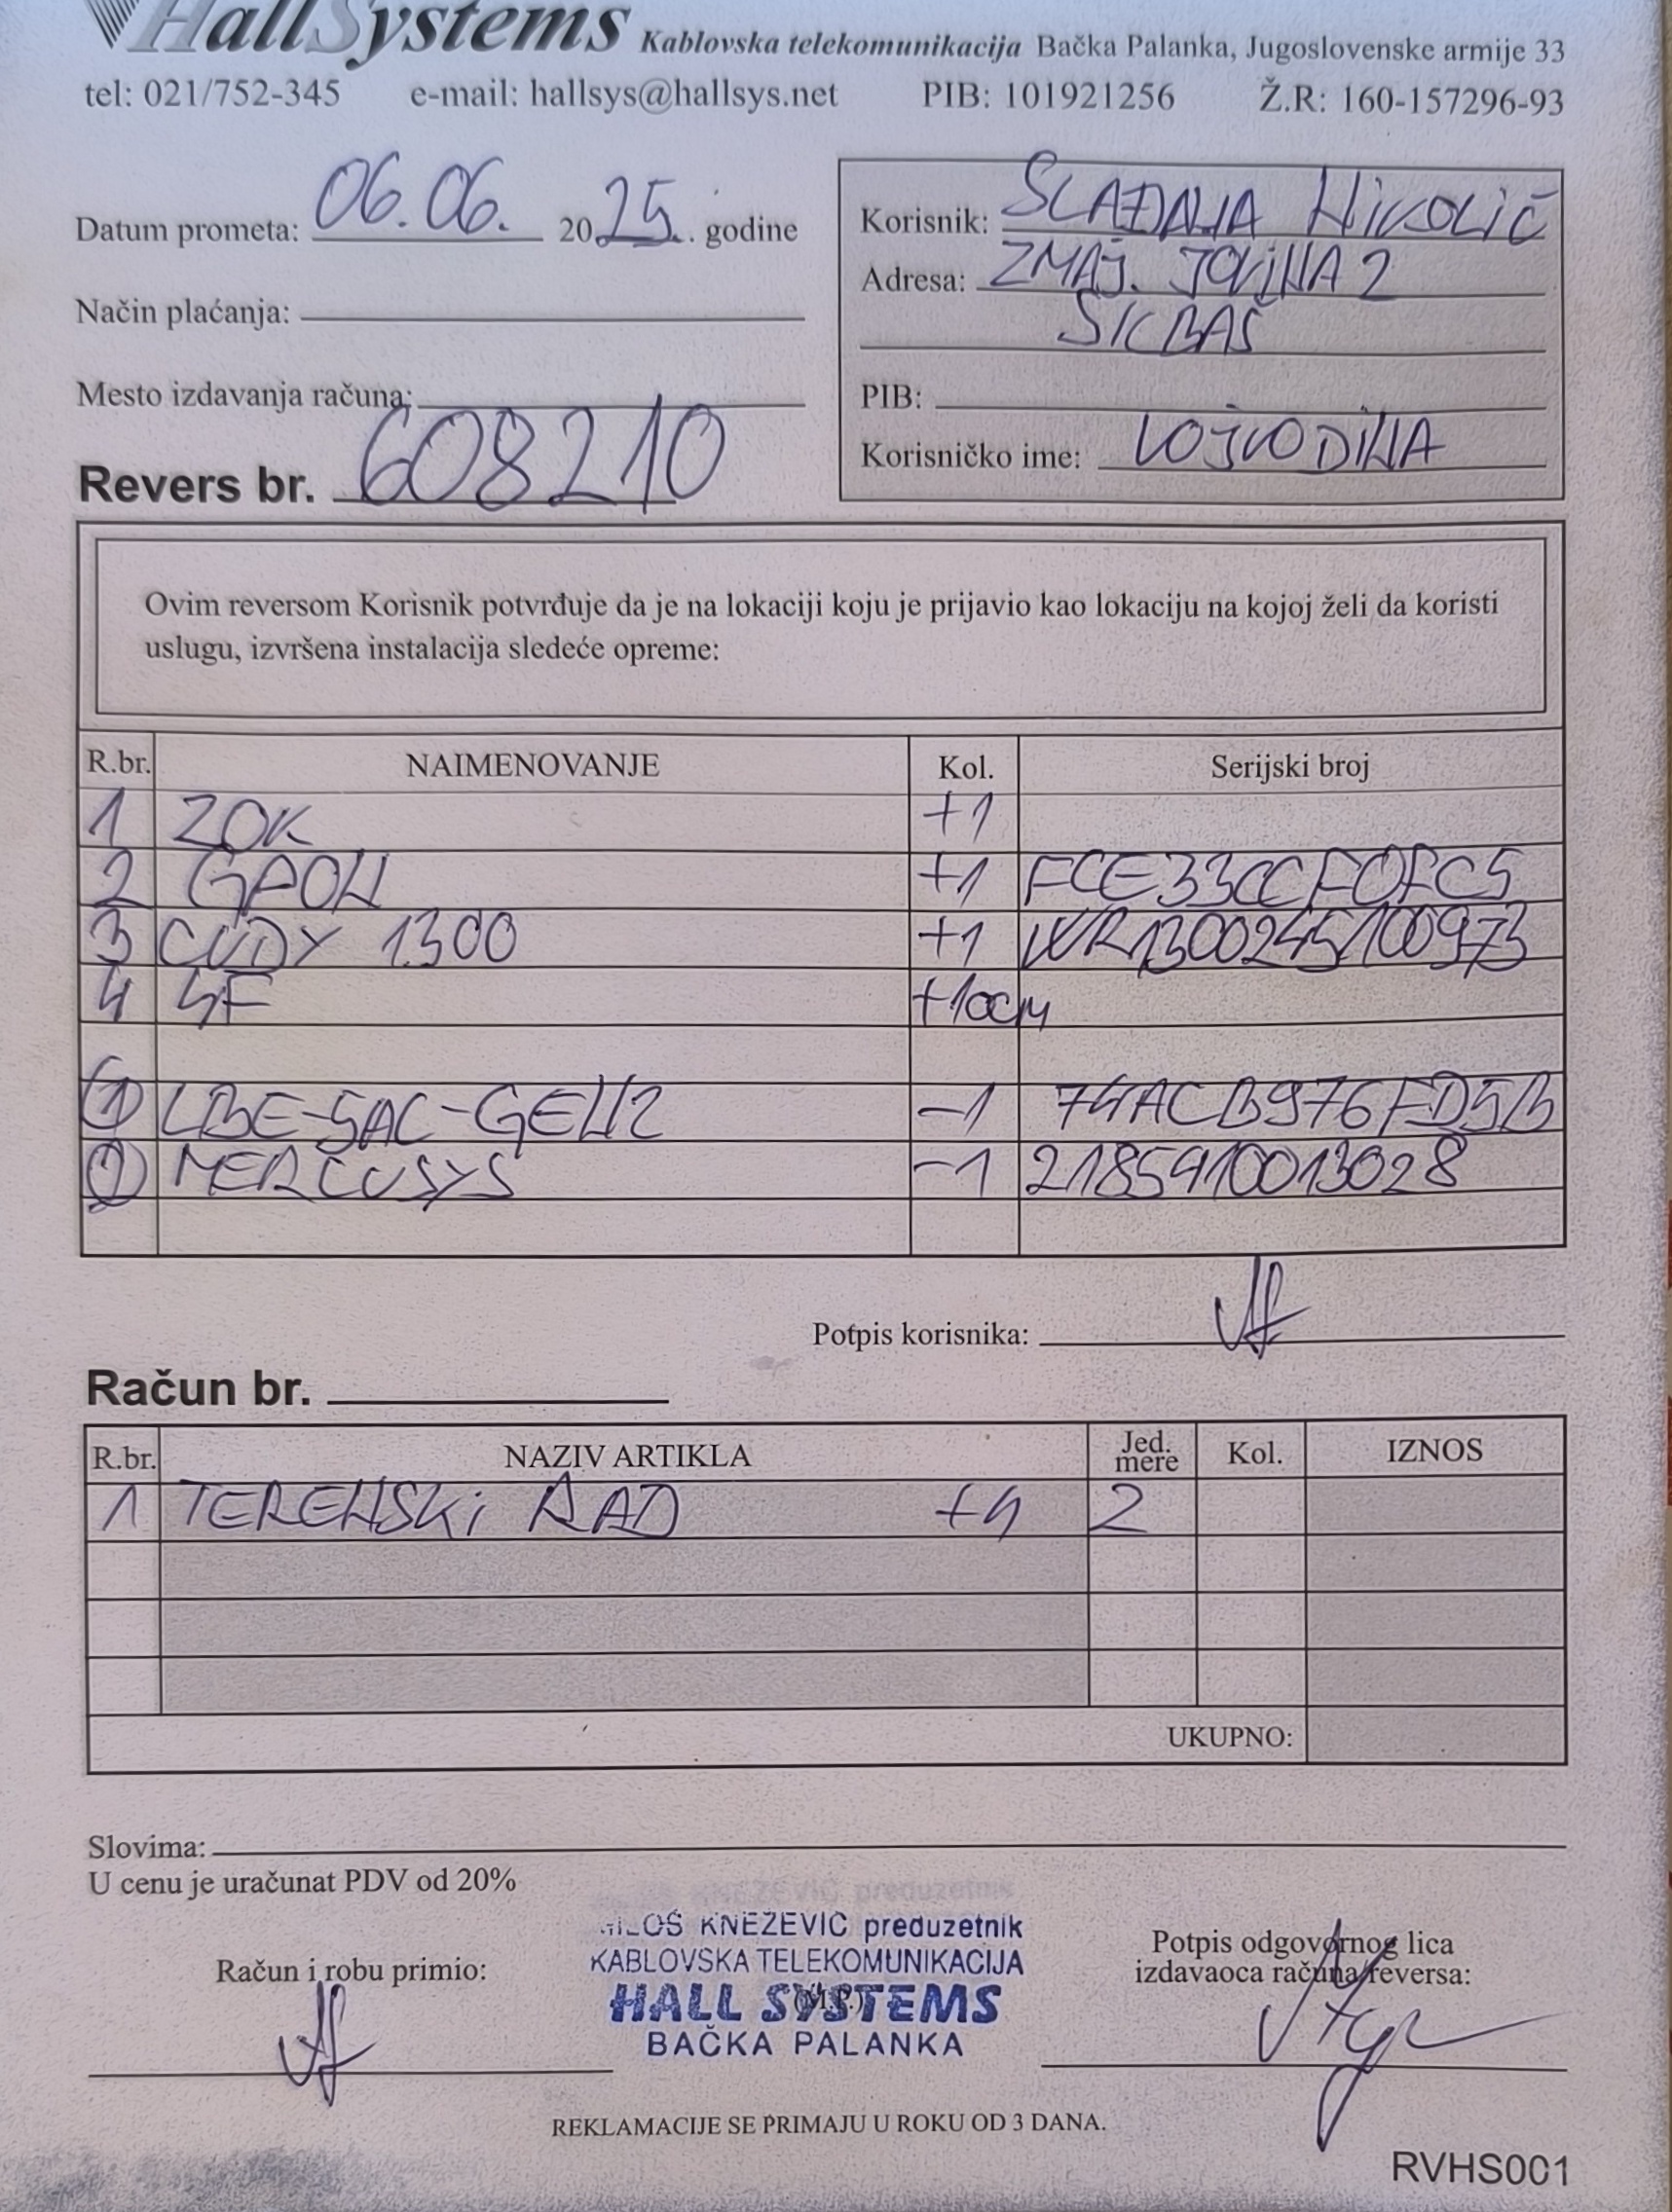 HallSystems Kablovska telekomunikacija Bačka Palanka, Jugoslovenske armije 33
tel: 021/752-345 e-mail: hallsys@hallsys.net PIB: 101921256 Ž.R: 160-157296-93
Datum prometa: 06.06. 2025. godine
Način plaćanja:
Mesto izdavanja računa:
Revers br. 608210
Korisnik: SLAĐANA NIKOLIĆ
Adresa: ZMAJ. JOVINA 2
SIRBAŠ
PIB:
Korisničko ime: VOJVODINA
Ovim reversom Korisnik potvrđuje da je na lokaciji koju je prijavio kao lokaciju na kojoj želi da koristi
uslugu, izvršena instalacija sledeće opreme:
R.br. NAIMENOVANJE Kol. Serijski broj
1 ZOK +1
2 GPON +1 FCE33CCF0FC5
3 CUDY 1300 +1 WR1300245100973
4 4F +100M
1 LBE-5AC-GEN2 -1 74ACB976FD5B
1 MERCUSYS -1 2185910013028
Potpis korisnika:
Račun br.
R.br. NAZIV ARTIKLA Jed. mere Kol. IZNOS
1 TERENSKI RAD +4 2
UKUPNO:
Slovima:
U cenu je uračunat PDV od 20%
Račun i robu primio:
MILOŠ KNEŽEVIĆ preduzetnik
KABLOVSKA TELEKOMUNIKACIJA
HALL SYSTEMS
(M.P.)
BAČKA PALANKA
Potpis odgovornog lica
izdavaoca računa/reversa:
REKLAMACIJE SE PRIMAJU U ROKU OD 3 DANA.
RVHS001